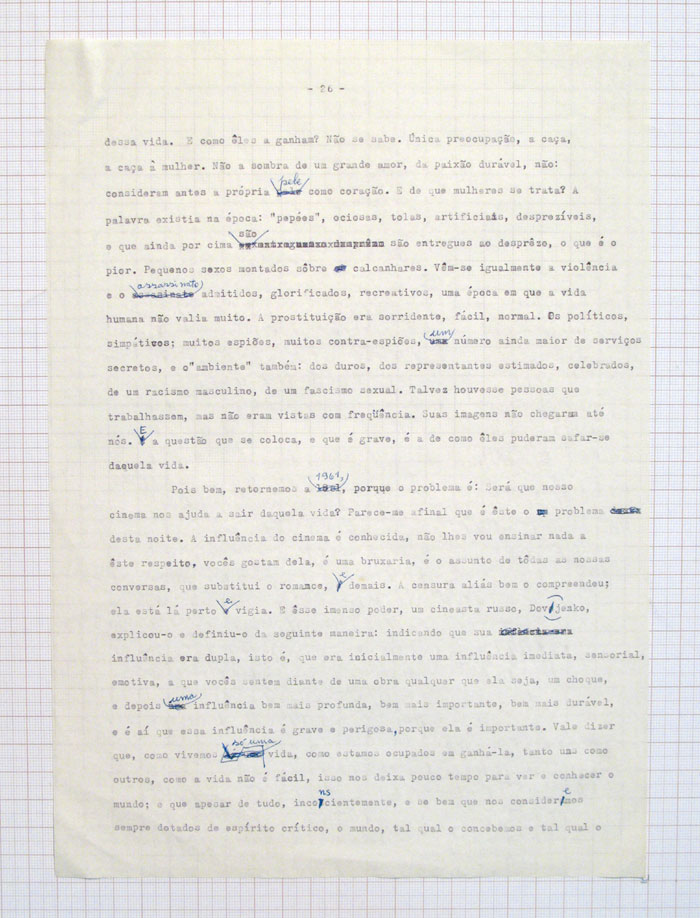 - 26 -
dessa vida. E como êles a ganham? Não se sabe. Única preocupação, a caça,
a caça à mulher. Não a sombra de um grande amor, da paixão durável, não:
consideram antes a própria pele como coração. E de que mulheres se trata? A
palavra existia na época: "pepées", ociosas, tolas, artificiais, desprezíveis,
e que ainda por cima são são entregues ao desprêzo, o que é o
pior. Pequenos sexos montados sôbre calcanhares. Vêm-se igualmente a violência
e o assassinato admitidos, glorificados, recreativos, uma época em que a vida
humana não valia muito. A prostituição era sorridente, fácil, normal. Os políticos,
simpáticos; muitos espiões, muitos contra-espiões, um número ainda maior de serviços
secretos, e o"ambiente" também: dos duros, dos representantes estimados, celebrados,
de um racismo masculino, de um fascismo sexual. Talvez houvesse pessoas que
trabalhassem, mas não eram vistas com freqüência. Suas imagens não chegaram até
nós. E a questão que se coloca, e que é grave, é a de como êles puderam safar-se
daquela vida.
Pois bem, retornemos a 1961, porque o problema é: Será que nosso
cinema nos ajuda a sair daquela vida? Parece-me afinal que é êste o problema
desta noite. A influência do cinema é conhecida, não lhes vou ensinar nada a
êste respeito, vocês gostam dela, é uma bruxaria, é o assunto de tôdas as nossas
conversas, que substitui o romance, e demais. A censura aliás bem o compreendeu;
ela está lá perto e vigia. E êsse imenso poder, um cineasta russo, Dovjenko,
explicou-o e definiu-o da seguinte maneira: indicando que sua
influência era dupla, isto é, que era inicialmente uma influência imediata, sensorial,
emotiva, a que vocês sentem diante de uma obra qualquer que ela seja, um choque,
e depois uma influência bem mais profunda, bem mais importante, bem mais durável,
e é aí que essa influência é grave e perigosa,porque ela é importante. Vale dizer
que, como vivemos só uma vida, como estamos ocupados em ganhá-la, tanto uns como
outros, como a vida não é fácil, isso nos deixa pouco tempo para ver e conhecer o
mundo; e que apesar de tudo, inconscientemente, e se bem que nos consideremos
sempre dotados de espírito crítico, o mundo, tal qual o concebemos e tal qual o